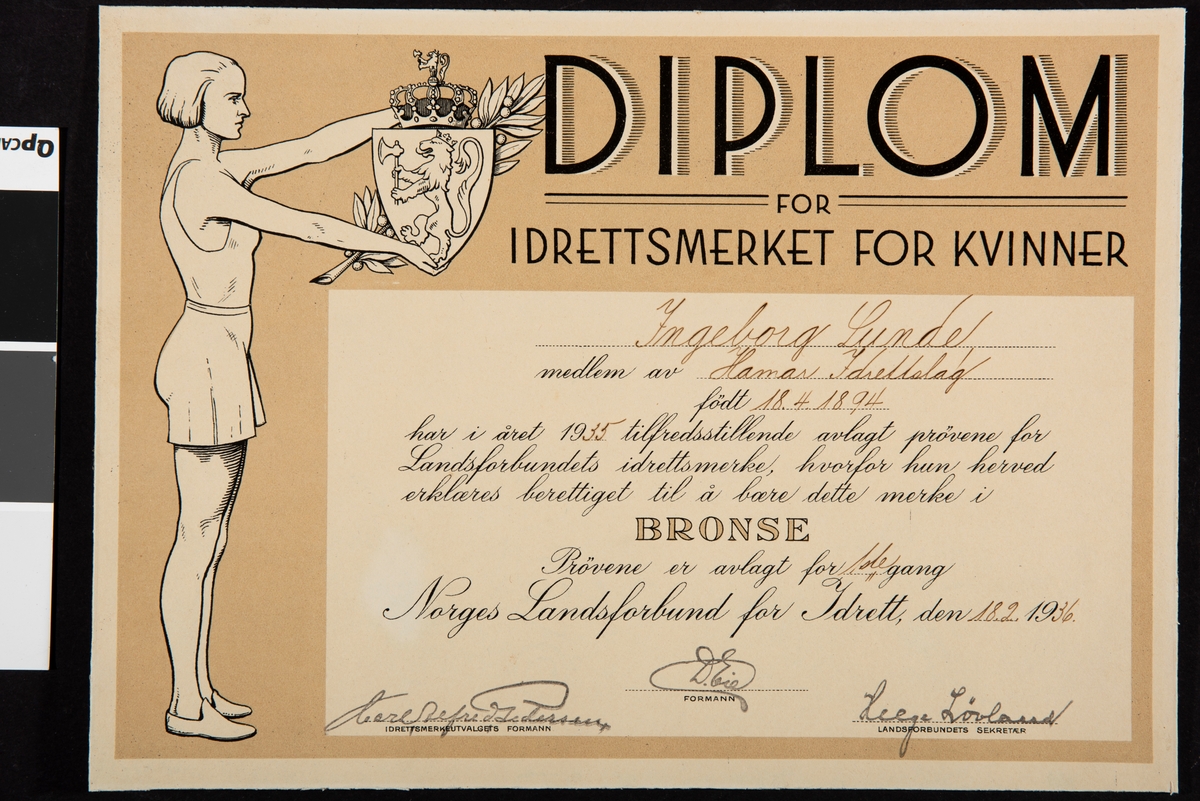 QPCA
DIPLOM
FOR
IDRETTSMERKET FOR KVINNER
Ingeborg Lunde
medlem av Hamar Idrettslag
födt 18.4.1894
har i året 1935 tilfredsstillende avlagt prövene for
Landsforbundets idrettsmerke, hvorfor hun herved
erklæres berettiget til å bære dette merke i
BRONSE
Prövene er avlagt for 1ste gang
Norges Landsforbund for Idrett, den 18.2. 1936.
D. Eie
FORMANN
Carl Alfred Pedersen
IDRETTSMERKEUTVALGETS FORMANN
Helge Løvland
LANDSFORBUNDETS SEKRETÆR